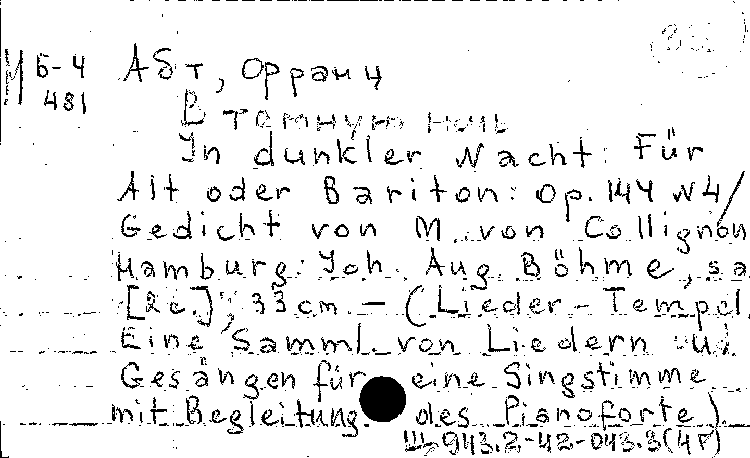 М Б-4 Абт, Франц
481 В темную ночь
In dunkler Nacht: Für
Alt oder Bariton: Op. 144 N4/
Gedicht von M. von Collignon
Hamburg: Joh. Aug. Böhme, sa
[2 c.]; 33 cm. — (Lieder-Tempel.
Eine Samml. von Liedern u.
Gesängen für eine Singstimme
mit Begleitung des Pianoforte).
Щ943.2-42-043.3(4Г)